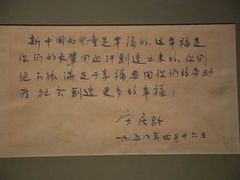 新中国的儿童是幸福的，这幸福是
你们的长辈用血汗创造出来的，你们
绝不能满足于享福要用你们的劳动
为社会创造更多的幸福！
宋庆龄
一九五八年四月十六日